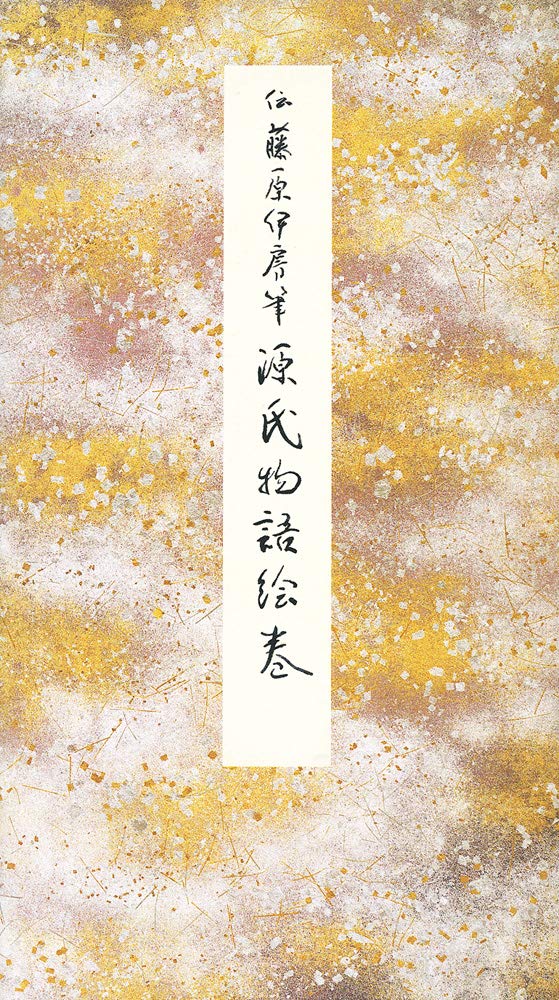 伝藤原伊房筆源氏物語絵巻